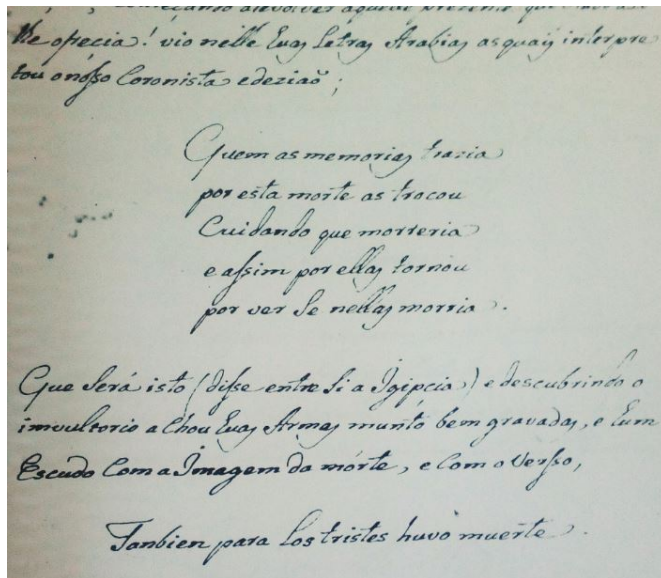 começando a revolver aquelle prezente que
lhe ofrecia! vio nelle huas Letras Arabias as quais interpre
tou o nósso Coronista e deziaõ;
Quem as memorias trazia
por esta morte as trocou
Cuidando que morreria
e assim por ellas tornou
por ver Se nellas morria.
Que Será isto (disse entre Si a Igipcia) e descubrindo o
invultorio achou huas Armas munto bem gravadas, e hum
Escudo Com a Imagem da mórte, e Com o Verso,
Tanbien para Los tristes huvo muerte.